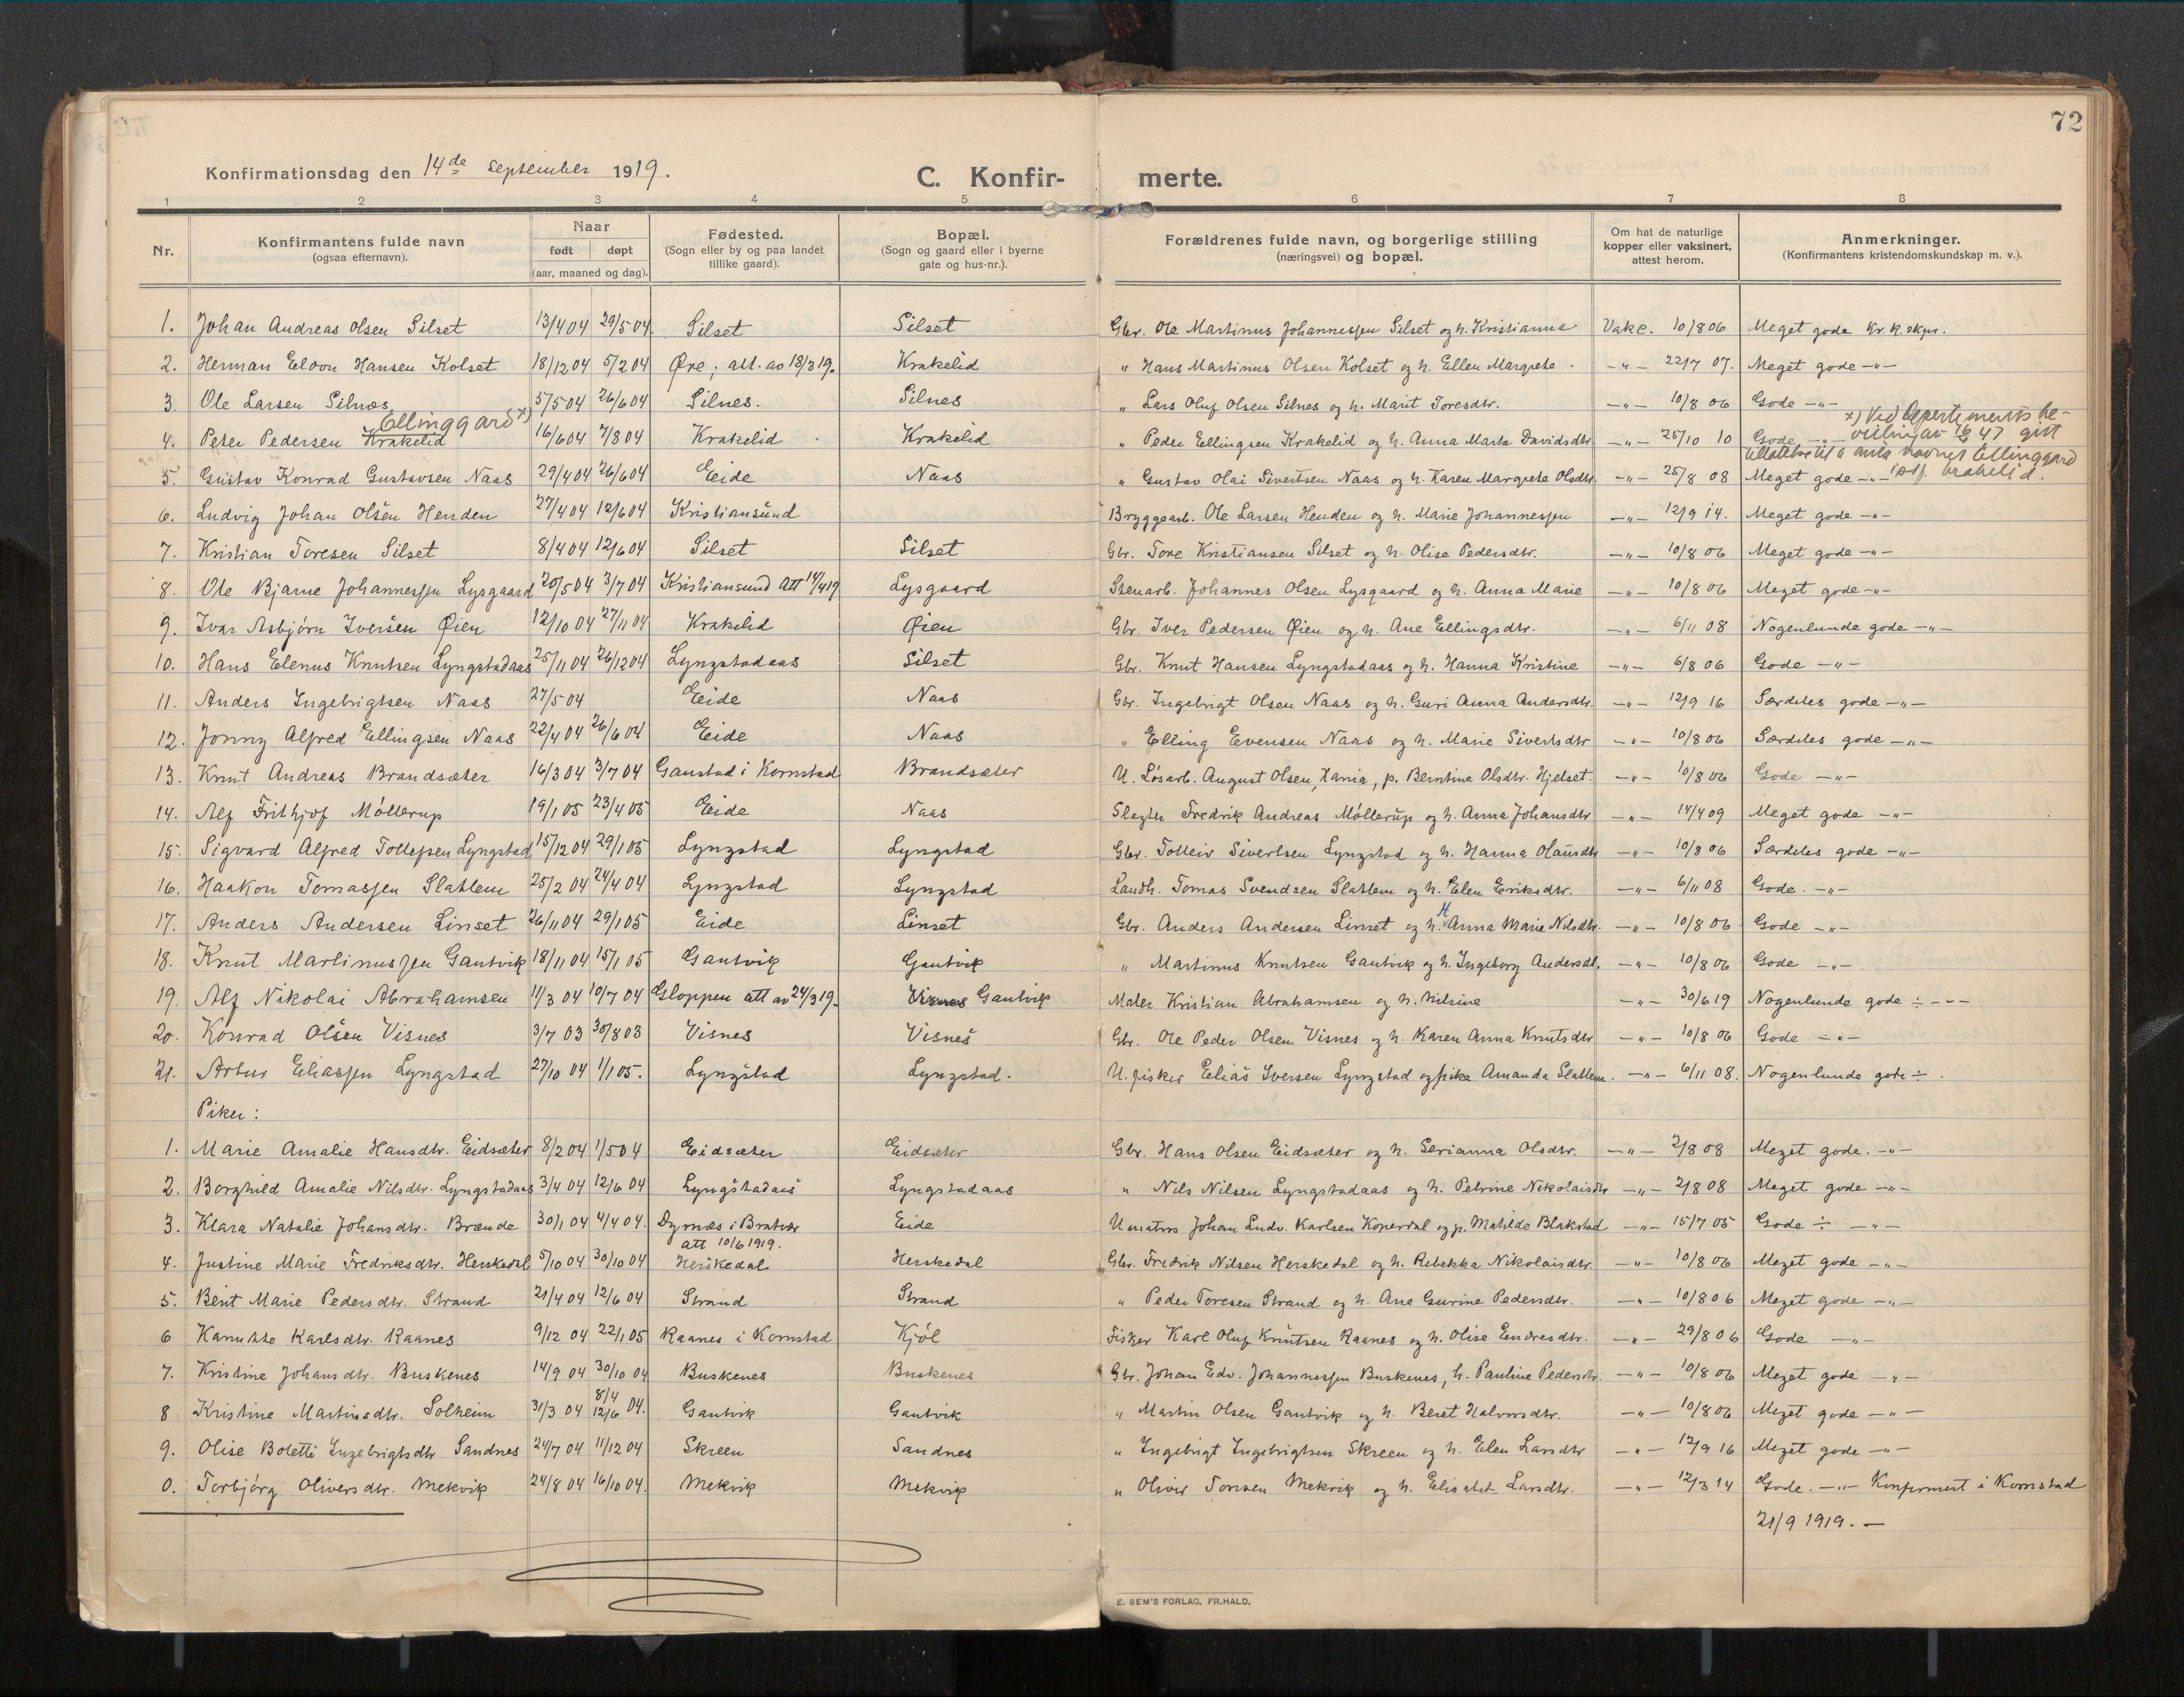 72
Konfirmationsdag den 14de September 1919.
C. Konfir- merte.
1 2 3 4 5 6 7 8
Nr. Konfirmantens fulde navn (ogsaa efternavn). Naar født døpt (aar, maaned og dag). Fødested. (Sogn eller by og paa landet tillike gaard). Bopæl. (Sogn og gaard eller i byerne gate og hus-nr.). Forældrenes fulde navn, og borgerlige stilling (næringsvei) og bopæl. Om hat de naturlige kopper eller vaksinert, attest herom. Anmerkninger. (Konfirmantens kristendomskundskap m. v.).
1. Johan Andreas Olsen Silset 13/4 04 29/5 04 Silset Silset Gbr. Ole Martinus Johannessen Silset og h. Kristianna Vakc. 10/8 06 Meget gode kr. k. skpr.
2. Herman Eldon Hansen Kolset 18/12 04 5/2 04 Øre; att. av 18/3 19. Krakelid " Hans Martinus Olsen Kolset og h. Ellen Margrete. -"- 22/7 07. Meget gode -"-
3. Ole Larsen Silnæs 5/5 04 26/6 04 Silnes. Silnes " Lars Oluf Olsen Silnes og h. Marit Toresdtr. -"- 10/8 06 Gode -"-
Ellinggard x) x) Ved Departements be-
4. Peter Pedersen Krakelid 16/6 04 7/8 04 Krakelid Krakelid " Peder Ellingsen Krakelid og h. Anna Marta Davidsdtr. -"- 25/10 10 Gode -"- av 16/6 47 gitt
tillatelse til å anta navnet Ellinggard
5. Gustav Konrad Gustavsen Naas 29/4 04 26/6 04 Eide Naas " Gustav Olai Sivertsen Naas og h. Karen Margrete Olsdtr. -"- 25/8 08 Meget gode -"- Krakelid.
6. Ludvig Johan Olsen Henden 27/4 04 12/6 04 Kristiansund Bryggearb. Ole Larsen Henden og h. Marie Johannessen -"- 12/9 14. Meget gode -"-
7. Kristian Toresen Silset 8/4 04 12/6 04 Silset Silset Gbr. Tore Kristiansen Silset og h. Olise Pedersdtr. -"- 10/8 06 Meget gode -"-
8. Ole Bjarne Johannessen Lysgaard 20/5 04 3/7 04 Kristiansund Att 14/4 19 Lysgaard Stenarb. Johannes Olsen Lysgaard og h. Anna Marie -"- 10/8 06 Meget gode -"-
9. Ivar Asbjørn Iversen Øien 12/10 04 27/11 04 Krakelid Øien Gbr. Iver Pedersen Øien og h. Ane Ellingsdtr. -"- 6/11 08 Nogenlunde gode -"-
10. Hans Elenus Knutsen Lyngstadaas 25/11 04 26/12 04 Lyngstadaas Silset Gbr. Knut Hansen Lyngstadaas og h. Hanna Kristine -"- 6/8 06 Gode -"-
11. Anders Ingebrigtsen Naas 27/5 04 Eide Naas Gbr. Ingebrigt Olsen Naas og h. Guri Anna Andersdtr. -"- 12/9 16 Særdeles gode -"-
12. Jonny Alfred Ellingsen Naas 22/4 04 26/6 04 Eide Naas " Elling Evensen Naas og h. Marie Sivertsdtr -"- 10/8 06 Særdeles gode -"-
13. Knut Andreas Brandsæter 16/3 04 3/7 04 Gaustad i Kornstad Brandsæter U. Løsarb. August Olsen, Xania, p. Berntine Olsdtr. Hjelset. -"- 10/8 06 Gode -"-
14. Alf Frithjof Møllerup 19/1 05 23/4 05 Eide Naas Slagter Fredrik Andreas Møllerup og h. Anna Johansdtr -"- 14/4 09 Meget gode -"-
15. Sigvard Alfred Tollefsen Lyngstad 15/12 04 29/1 05 Lyngstad Lyngstad Gbr. Tolleiv Sivertsen Lyngstad og h. Hanna Olausdtr -"- 10/8 06 Særdeles gode -"-
16. Haakon Tomassen Slatlem 25/2 04 24/4 04 Lyngstad Lyngstad Landh. Tomas Svendsen Slatlem og h. Elen Eriksdtr. -"- 6/11 08 Gode. -"-
17. Anders Andersen Linset 26/11 04 29/1 05 Eide Linset Gbr. Anders Andersen Linset og h. H Anna Marie Nilsdtr. -"- 10/8 06 Gode -"-
18. Knut Martinussen Gautvik 18/11 04 15/1 05 Gautvik Gautvik " Martinus Knutsen Gautvik og h. Ingeborg Andersdt. -"- 10/8 06 Gode -"-
19. Alf Nikolai Abrahamsen 11/3 04 10/7 04 Gloppen att av 24/3 19. Visnes Gautvik Maler Kristian Abrahamsen og h. Nilsine -"- 30/6 19 Nogenlunde gode ÷ -"-
20. Konrad Olsen Visnes 3/7 03 30/8 03 Visnes Visnes Gbr. Ole Peder Olsen Visnes og h. Karen Anna Knutsdtr -"- 10/8 06 Gode -"-
21. Artur Eliassen Lyngstad 27/10 04 1/1 05. Lyngstad Lyngstad. U. fisker Elias Iversen Lyngstad og pike Amanda Slatlem. -"- 6/11 08. Nogenlunde gode ÷
Piker:
1. Marie Amalie Hansdtr. Eidsæter 8/2 04 1/5 04 Eidsæter Eidsæter Gbr. Hans Olsen Eidsæter og h. Serianna Olsdtr. -"- 2/8 08 Meget gode. -"-
2. Borghild Amalie Nilsdtr. Lyngstadaas 3/4 04 12/6 04 Lyngstadaas Lyngstadaas " Nils Nilsen Lyngstadaas og h. Petrine Nikolaisdtr -"- 2/8 08 Meget gode -"-
3. Klara Natalie Johansdtr. Brænde 30/1 04 4/4 04. Dyrnæs i Bratvær Eide Umatros Johan Ludv. Karlsen Koperdal og p. Matilde Blakstad -"- 15/7 05 Gode ÷ -"-
att 10/6 1919.
4. Justine Marie Fredriksdtr. Herskedal 5/10 04 30/10 04 Herskedal Herskedal Gbr. Fredrik Nilsen Herskedal og h. Rebekka Nikolaisdtr. -"- 10/8 06 Meget gode -"-
5. Berit Marie Pedersdtr. Strand 21/4 04 12/6 04 Strand Strand " Peder Toresen Strand og h. Ane Gurine Pedersdtr. -"- 10/8 06 Meget gode -"-
6 Kanutte Karlsdtr. Raanes 9/12 04 22/1 05 Raanes i Kornstad Kjøl Fisker Karl Oluf Knutsen Raanes og h. Olise Endresdtr. -"- 29/8 06 Gode -"-
7. Kristine Johansdtr. Buskenes 14/9 04 30/10 04 Buskenes Buskenes Gbr. Johan Edv. Johannessen Buskenes, h. Pauline Pedersdtr. -"- 10/8 06 Meget gode -"-
8 Kristine Martinsdtr. Solheim 31/3 04 8/4 12/6 04. Gautvik Gautvik " Martin Olsen Gautvik og h. Beret Halvorsdtr. -"- 10/8 06 Meget gode -"-
9. Olise Boletti Ingebrigtsdtr Sandnes 24/7 04 11/12 04 Skreen Sandnes " Ingebrigt Ingebrigtsen Skreen og h. Elen Larsdtr -"- 12/9 16 Meget gode -"-
0. Torbjørg Oliversdtr. Mekvik 24/8 04 16/10 04. Mekvik Mekvik " Oliver Toresen Mekvik og h. Elisabet Larsdtr. -"- 12/3 14 Gode. -"- Konfirmert i Kornstad
21/9 1919. -
E. SEM'S FORLAG, FR.HALD.